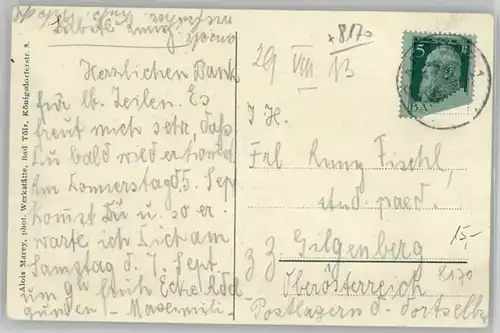 Liebste Runy!
Herzlichen Dank
für lb. Zeilen. Es
freut mich sehr, daß
Du bald wieder kommst.
Am Donnerstag d 5. Sep
kommst Du u. so er
warte ich Dich am
Samstag d. 7. Sept.
um 9h früh Ecke Adel
gunden - Maximili-
Alois Marey, phot. Werkstätte, Bad Tölz, Königsdorferstr. 8.
+8170
29 VIII 13
5
I H.
Frl Runy Fischl,
stud. paed.
z z Gilgenberg
15,-
Oberösterreich
8170
Postlagern d. dortselbst